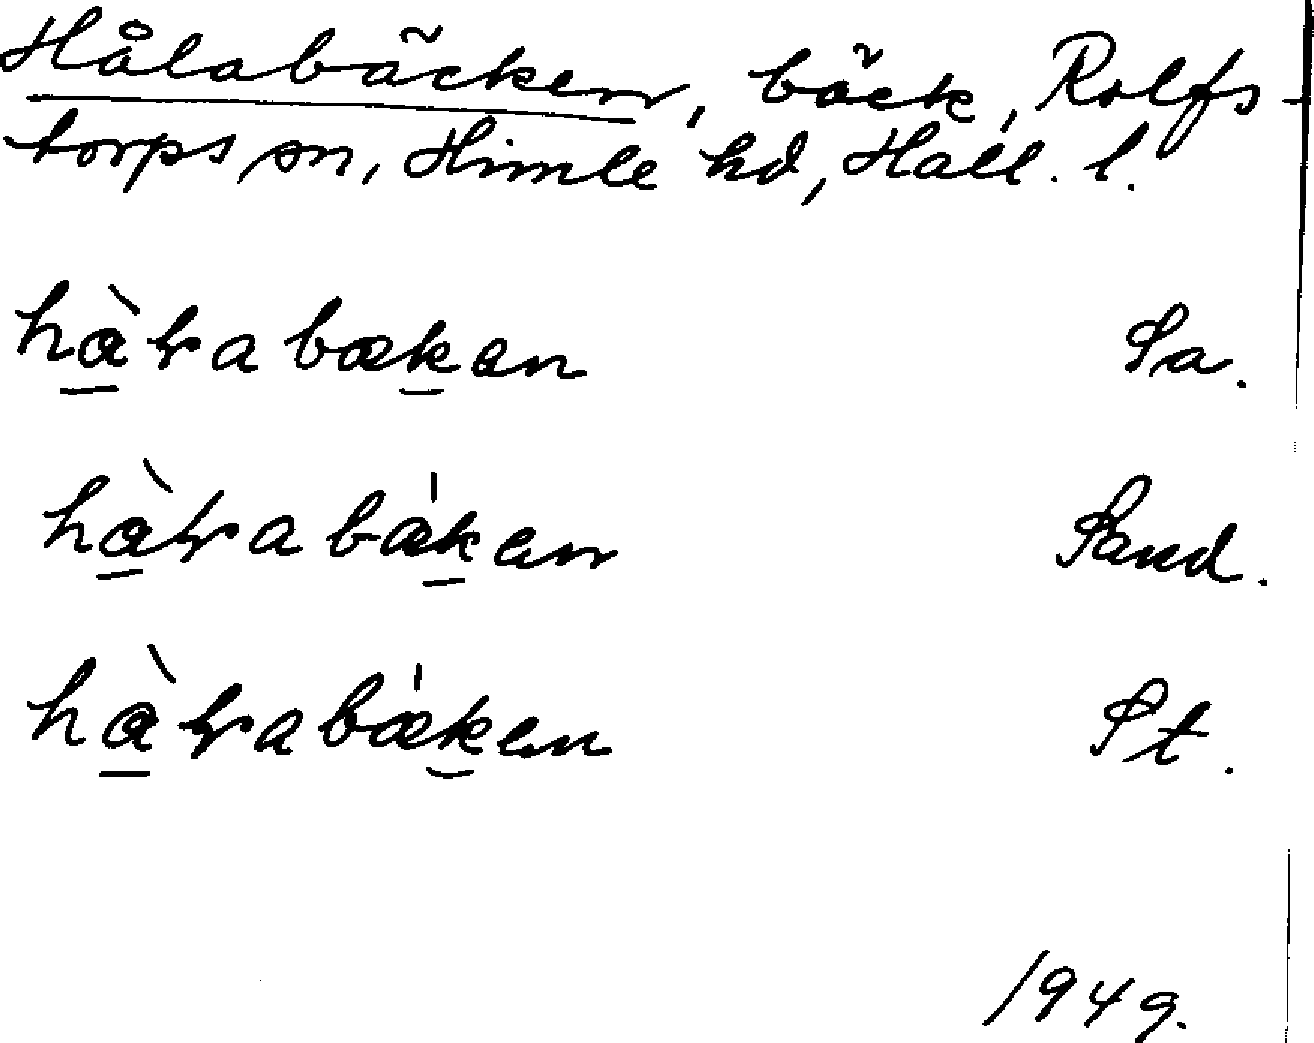 Hålabäcken, bäck, Rolfs-
torps sn, Himle hd, Hall. l.
hàɫabæken Sa.
hàɫabæ̍ken Sand.
hàɫabæ̍ken St.
1949.